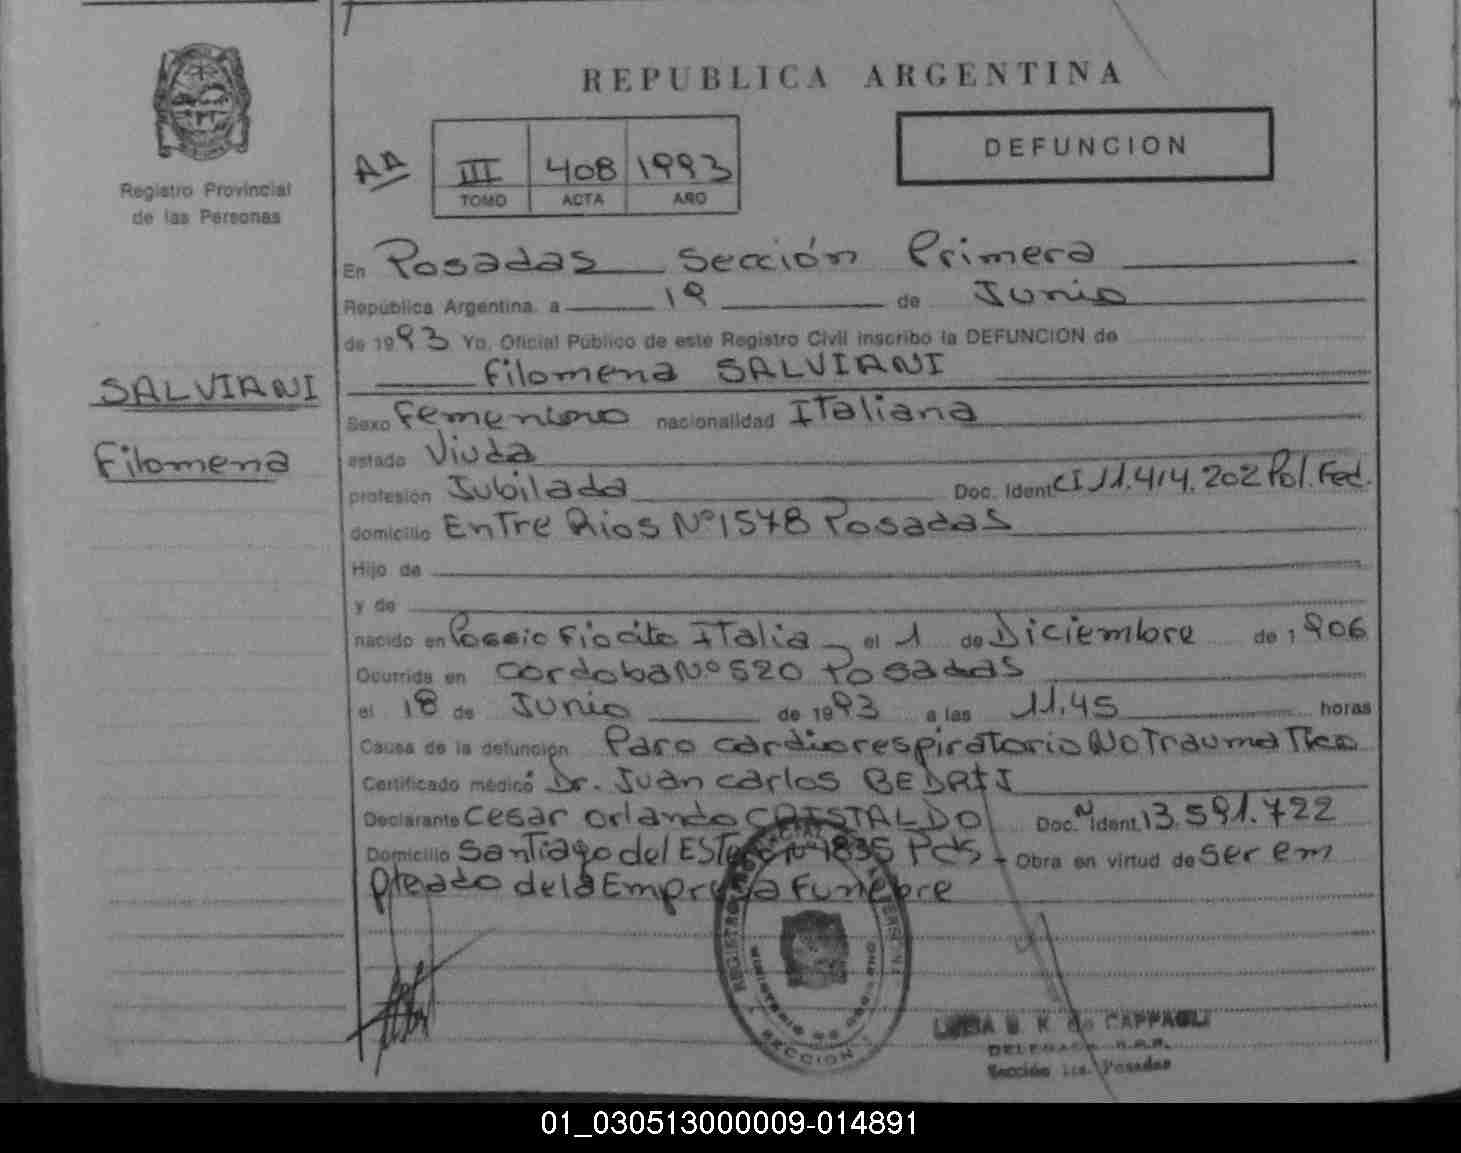 REPUBLICA ARGENTINA
Registro Provincial
de las Personas
AA
III 408 1993
TOMO ACTA AÑO
DEFUNCION
En Posadas Sección Primera
República Argentina a 19 de Junio
de 1993 Yo, Oficial Público de este Registro Civil inscribo la DEFUNCION de
Filomena SALVIANI
SALVIANI
Filomena
Sexo Femenino nacionalidad Italiana
estado Viuda
profesión Jubilada Doc. Ident CI 11.414.202 Pol. Fed.
domicilio Entre Rios Nº 1578 Posadas
Hijo de
y de
nacido en Italia el 1 de Diciembre de 1906
Ocurrida en Cordoba Nº 520 Posadas
el 18 de Junio de 1993 a las 11.45 horas
Causa de la defunción Paro cardiorespiratorio No Traumatico
Certificado médico Dr. Juan carlos
Declarante Cesar Orlando CRISTALDO Doc. Ident. 13.591.722
Domicilio Santiago del Estero Nº 1835 Pds - Obra en virtud de ser em
pleado de la Empresa Funebre
REGISTRO
MINISTERIO DE GOBIERNO
SECCION
de CAPPAGLI
Sección 1ra. Posadas
01_030513000009-014891